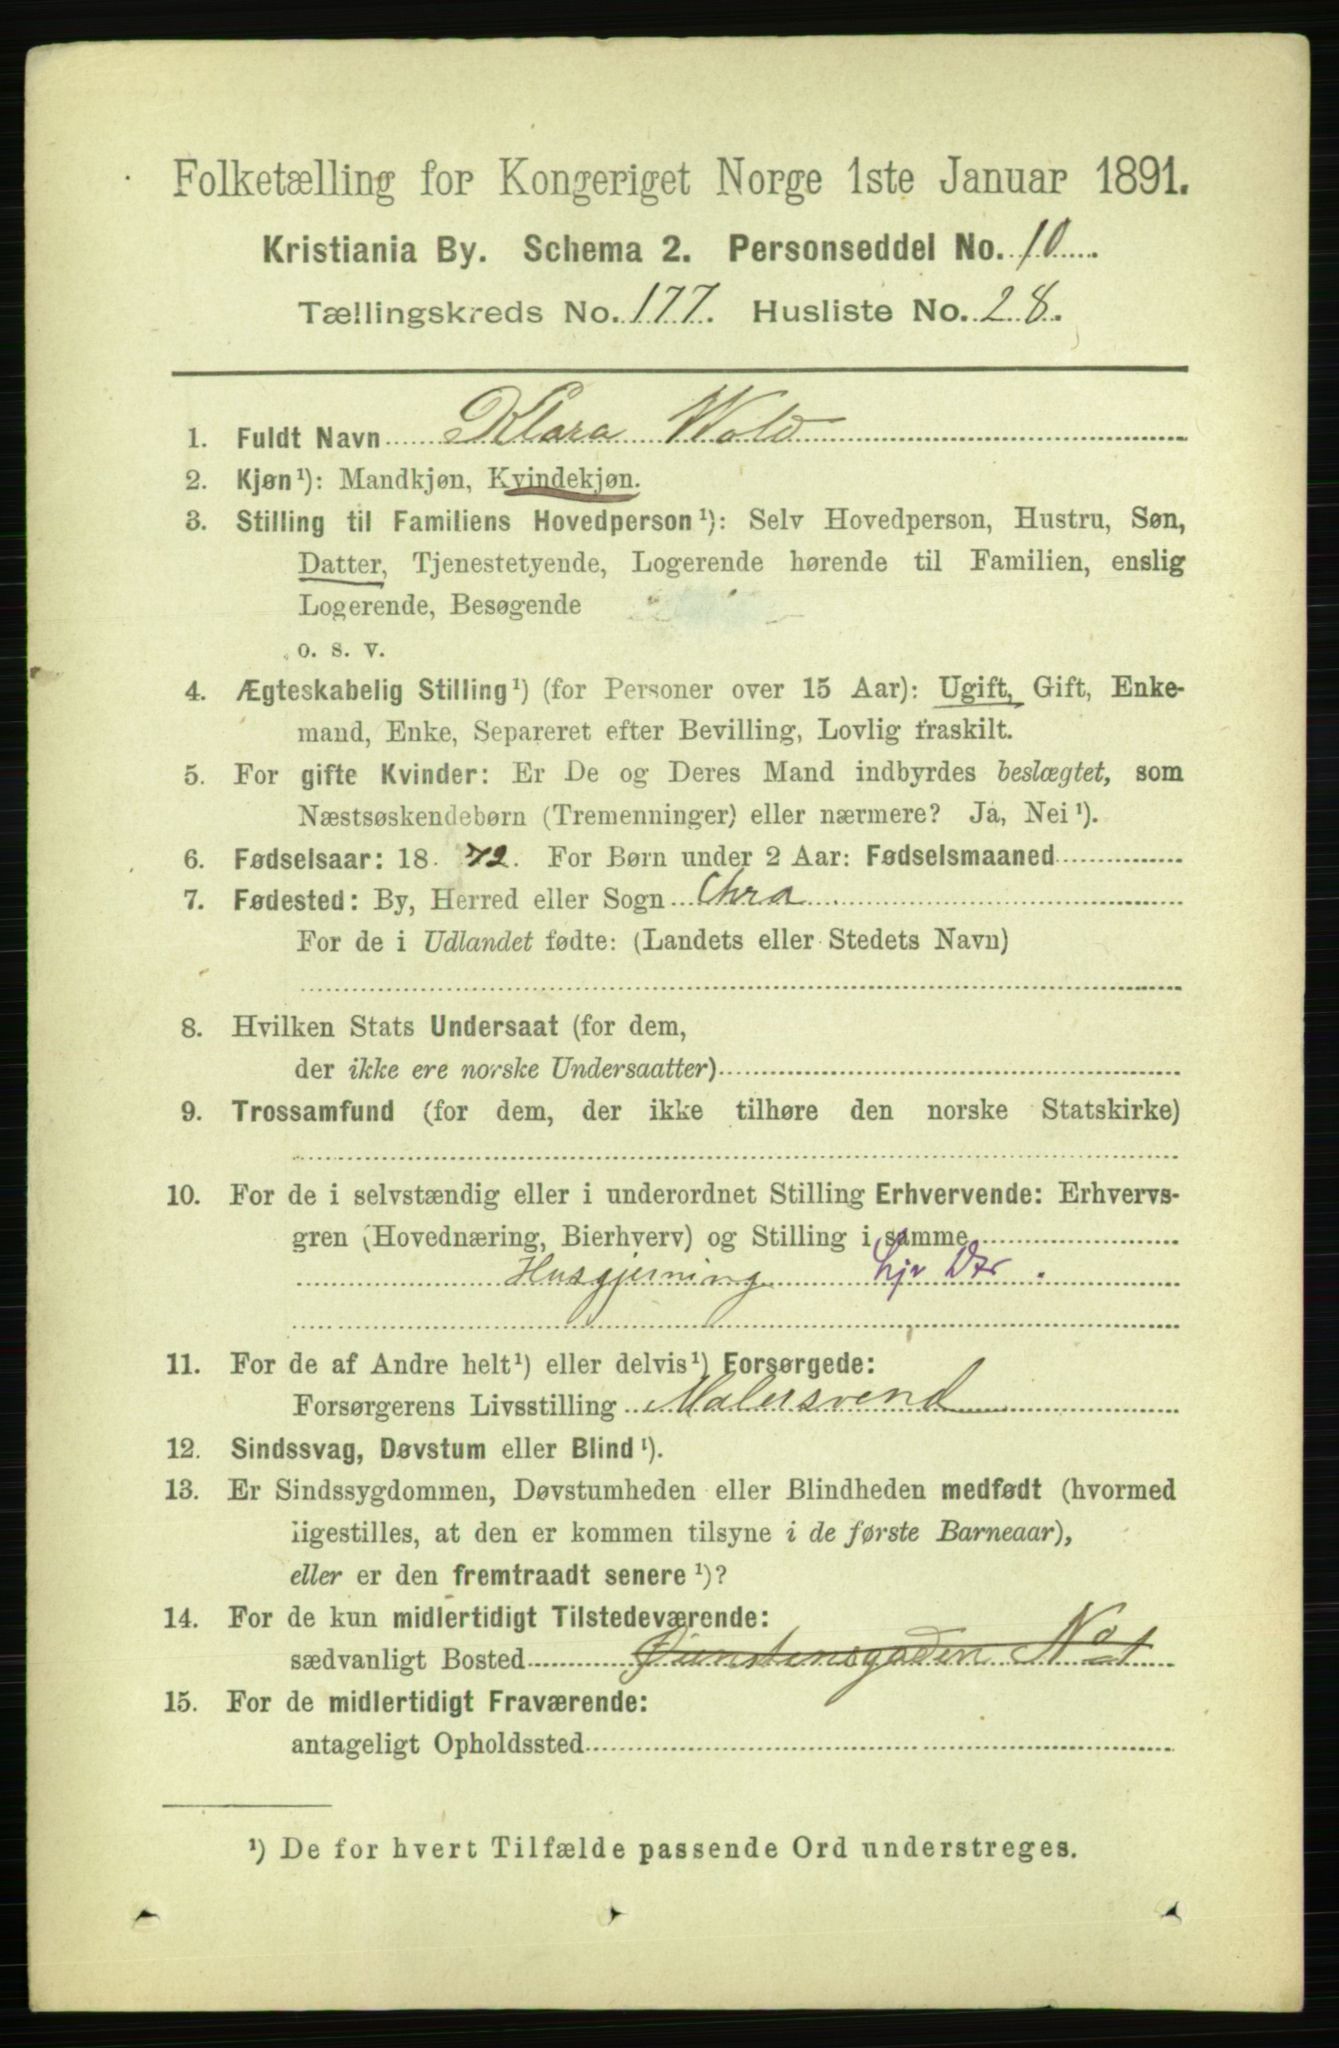 Folketælling for Kongeriget Norge 1ste Januar 1891.
Kristiania By. Schema 2. Personseddel No. 10
Tællingskreds No. 177. Husliste No. 28.
1. Fuldt Navn Klara Wold
2. Kjøn¹): Mandkjøn, Kvindekjøn.
3. Stilling til Familiens Hovedperson¹): Selv Hovedperson, Hustru, Søn,
Datter, Tjenestetyende, Logerende hørende til Familien, enslig
Logerende, Besøgende
o. s. v.
4. Ægteskabelig Stilling¹) (for Personer over 15 Aar): Ugift, Gift, Enke-
mand, Enke, Separeret efter Bevilling, Lovlig fraskilt.
5. For gifte Kvinder: Er De og Deres Mand indbyrdes beslægtet, som
Næstsøskendebørn (Tremenninger) eller nærmere? Ja, Nei¹).
6. Fødselsaar: 18 72. For Børn under 2 Aar: Fødselsmaaned
7. Fødested: By, Herred eller Sogn Chra
For de i Udlandet fødte: (Landets eller Stedets Navn)
8. Hvilken Stats Undersaat (for dem,
der ikke ere norske Undersaatter)
9. Trossamfund (for dem, der ikke tilhøre den norske Statskirke)
10. For de i selvstændig eller i underordnet Stilling Erhvervende: Erhvervs-
gren (Hovednæring, Bierhverv) og Stilling i samme
Husgjerning hjv Dtr.
11. For de af Andre helt¹) eller delvis¹) Forsørgede:
Forsørgerens Livsstilling Malersvend
12. Sindssvag, Døvstum eller Blind¹).
13. Er Sindssygdommen, Døvstumheden eller Blindheden medfødt (hvormed
ligestilles, at den er kommen tilsyne i de første Barneaar),
eller er den fremtraadt senere¹)?
14. For de kun midlertidigt Tilstedeværende:
sædvanligt Bosted No 1
15. For de midlertidigt Fraværende:
antageligt Opholdssted
¹) De for hvert Tilfælde passende Ord understreges.